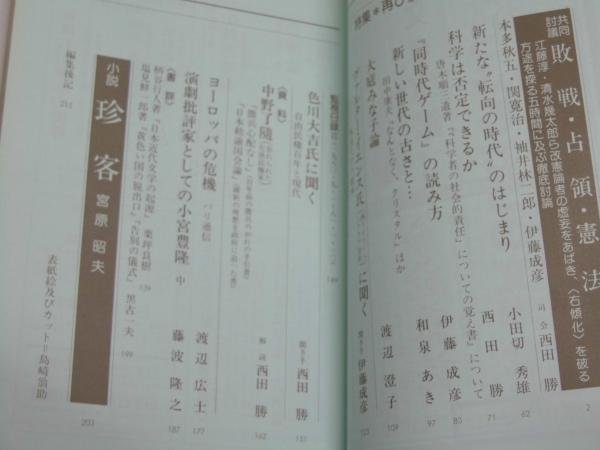 特集＊再び
共同討議
敗戦・占領・憲法
江藤淳・清水幾太郎ら改憲論者の虚妄をあばき、〈右傾化〉を破る
方途を探る五時間に及ぶ徹底討論
本多秋五・関寛治・袖井林二郎・伊藤成彦
司会 西田勝 2
新たな“転向の時代”のはじまり 小田切秀雄 62
科学は否定できるか 西田勝 71
唐木順三遺著『「科学者の社会的責任」についての覚え書』について
『同時代ゲーム』の読み方 伊藤成彦 83
新しい世代の古さと… 和泉あき 97
田中康夫『なんとなく、クリスタル』ほか
大庭みな子論 渡辺澄子 109
イエンス氏に聞く 聞き手 伊藤成彦 123
色川大吉氏に聞く 聞き手 西田勝 151
自由民権百年と現代
〈資料〉
中野了随 解説 西田勝 162
ヨーロッパの危機 パリ通信 渡辺広士 177
演劇批評家としての小宮豊隆 中 藤波隆之 187
〈書評〉
柄谷行人著『日本近代文学の起源』 栗坪良樹 159
塩見鮮一郎著『黄色い国の脱出口』『告別の儀式』 黒古一夫 199
小説 珍客 宮原昭夫 203
編集後記 211
表紙絵及びカット＝島崎蓊助